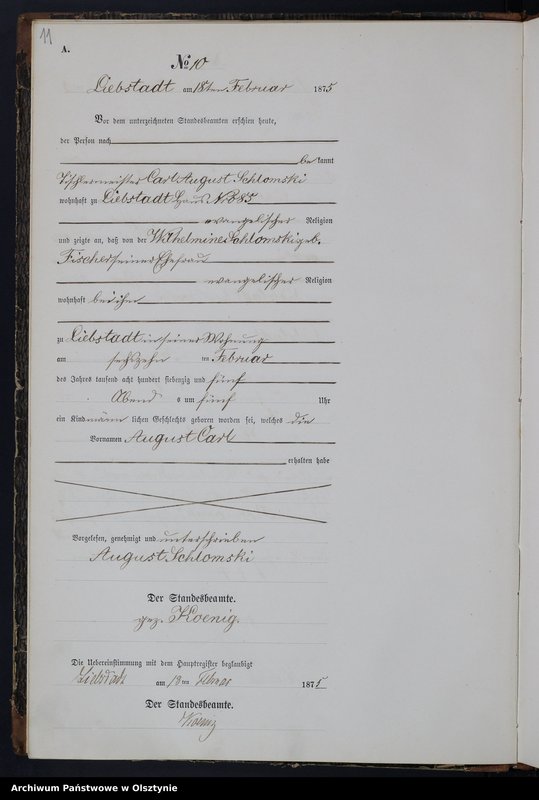 11
A.
No 10
Liebstadt am 18ten Februar 1875
Vor dem unterzeichneten Standesbeamten erschien heute,
der Person nach
bekannt
Tischlermeister Carl August Schlomski
wohnhaft zu Liebstadt Haus No 85
evangelischer Religion
und zeigte an, daß von der Wilhelmine Schlomski geb.
Fischer seiner Ehefrau
evangelischer Religion
wohnhaft bei ihm
zu Liebstadt in seiner Wohnung
am sechszehn ten Februar
des Jahres tausend acht hundert siebenzig und fünf
Abends um fünf Uhr
ein Kind männlichen Geschlechts geboren worden sei, welches die
Vornamen August Carl
erhalten habe
Vorgelesen, genehmigt und unterschrieben
August Schlomski
Der Standesbeamte.
gez. Koenig.
Die Uebereinstimmung mit dem Hauptregister beglaubigt
Liebstadt am 18ten Februar 1875
Der Standesbeamte.
Koenig
Archiwum Państwowe w Olsztynie